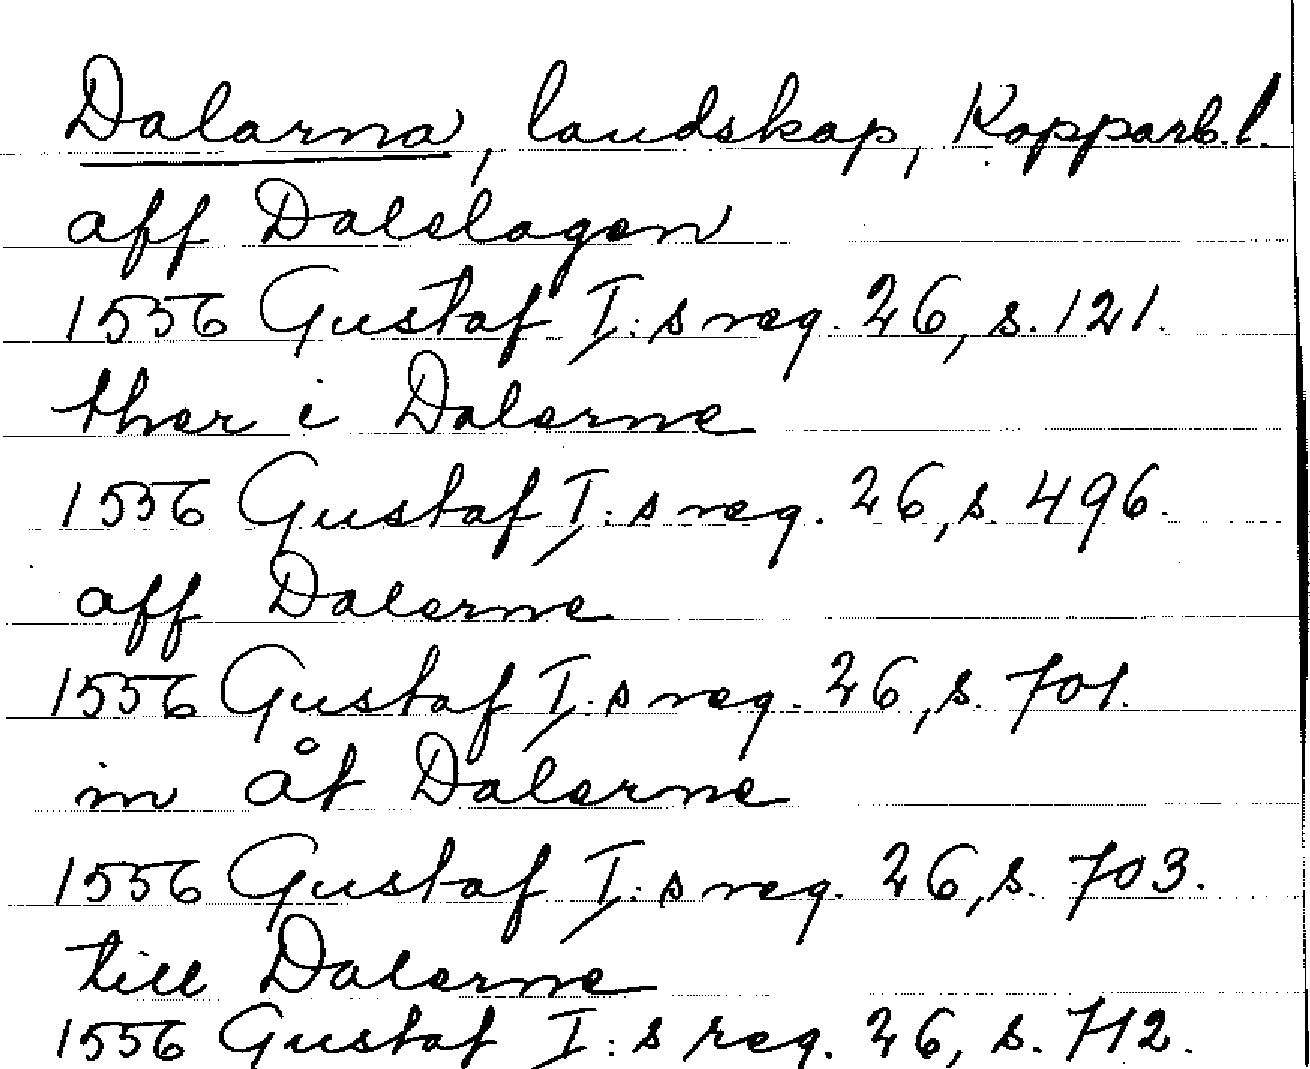 Dalarna, landskap, Kopparb.l.
aff Dalelagen
1556 Gustaf I:s reg. 26, s. 121.
ther i Dalerne
1556 Gustaf I:s reg. 26, s. 496.
aff Dalerne
1556 Gustaf I:s reg. 26, s. 701.
in åt Dalerne
1556 Gustaf I:s reg. 26, s. 703.
till Dalerne
1556 Gustaf I:s reg. 26, s. 712.